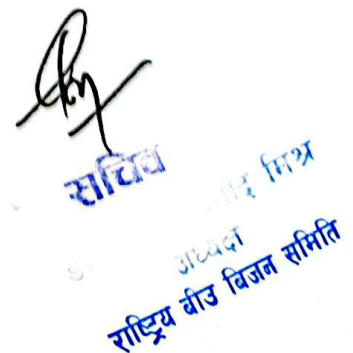 सचिव
मिश्र
अध्यक्ष
राष्ट्रिय बीउ बिजन समिति